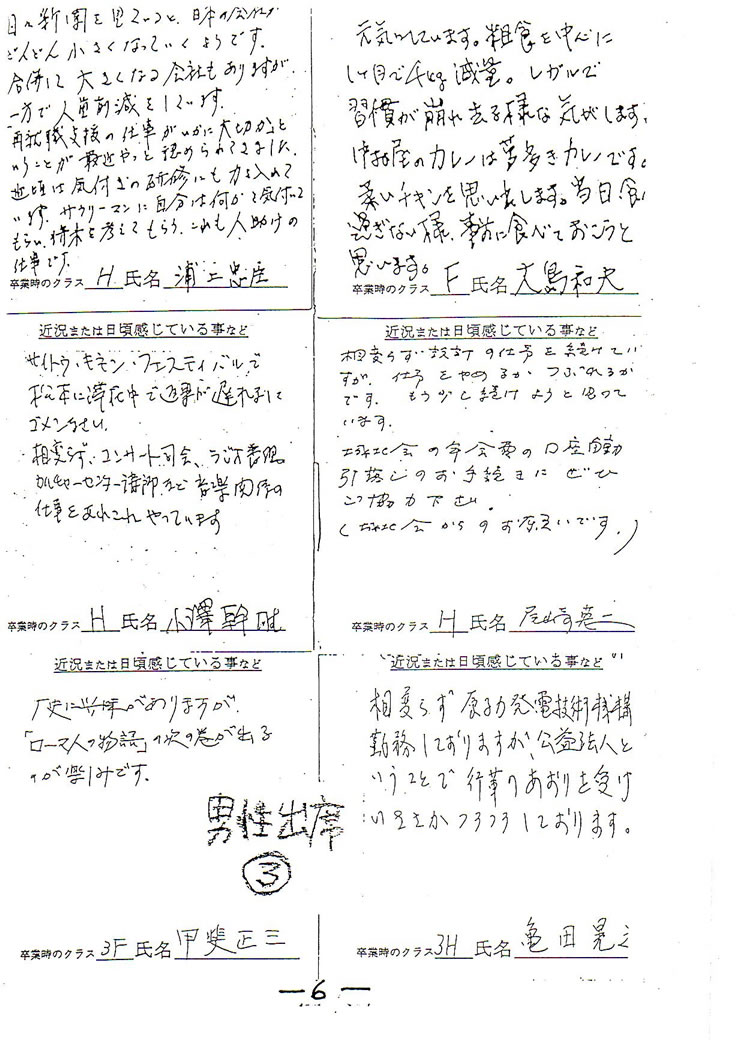 日々新聞を見ていると、日本の会社が
どんどん小さくなっていくようです。
合併して大きくなる会社もありますが、
一方で人員削減をしています。
再就職支援の仕事がいかに大切かと
いうことが最近やっと認められてきました。
近頃は気付きの研修にも力を入れて
います。サラリーマンに自分は何かて気付いて
もらい、将来を考えてもらう、これも人助けの
仕事です。
卒業時のクラス H 氏名 浦上忠
元気にしています。粗食を中心に
1ヶ月で4kg減量。レガルで
習慣が崩れ去る様な気がします。
屋のカレーは芋多きカレーです。
柔いチキンを思い出します。当日食
過ぎない様、事前に食べておこうと
思います。
卒業時のクラス F 氏名 大島和夫
近況または日頃感じている事など
サイトウ・キネン・フェスティバルで
松本に滞在中で返事が遅れまして
ゴメンなさい。
相変らず、コンサート司会、ラジオ番組
カルチャーセンター講師など音楽関係の
仕事をあれこれやっています
卒業時のクラス H 氏名 小澤幹雄
近況または日頃感じている事など
相変らず設計の仕事を続けてい
すが、仕事をやめるか つぶれるか
です。もう少し続けようと思って
います。
会の年会費の口座自動
引落しのお手続きにぜひ
ご協力下さい。
(会からのお願いです。)
卒業時のクラス H 氏名 尾崎英二
近況または日頃感じている事など
歴史に興味がありますが、
「ローマ人の物語」の次の巻が出る
のが楽しみです。
卒業時のクラス 3F 氏名 甲斐正三
近況または日頃感じている事など
相変らず原子力発電技術機構
勤務しておりますが、公益法人と
いうことで行革のあおりを受け
いささかウロウロしております。
卒業時のクラス 3H 氏名 亀田晃之
男性出席
③
—6—